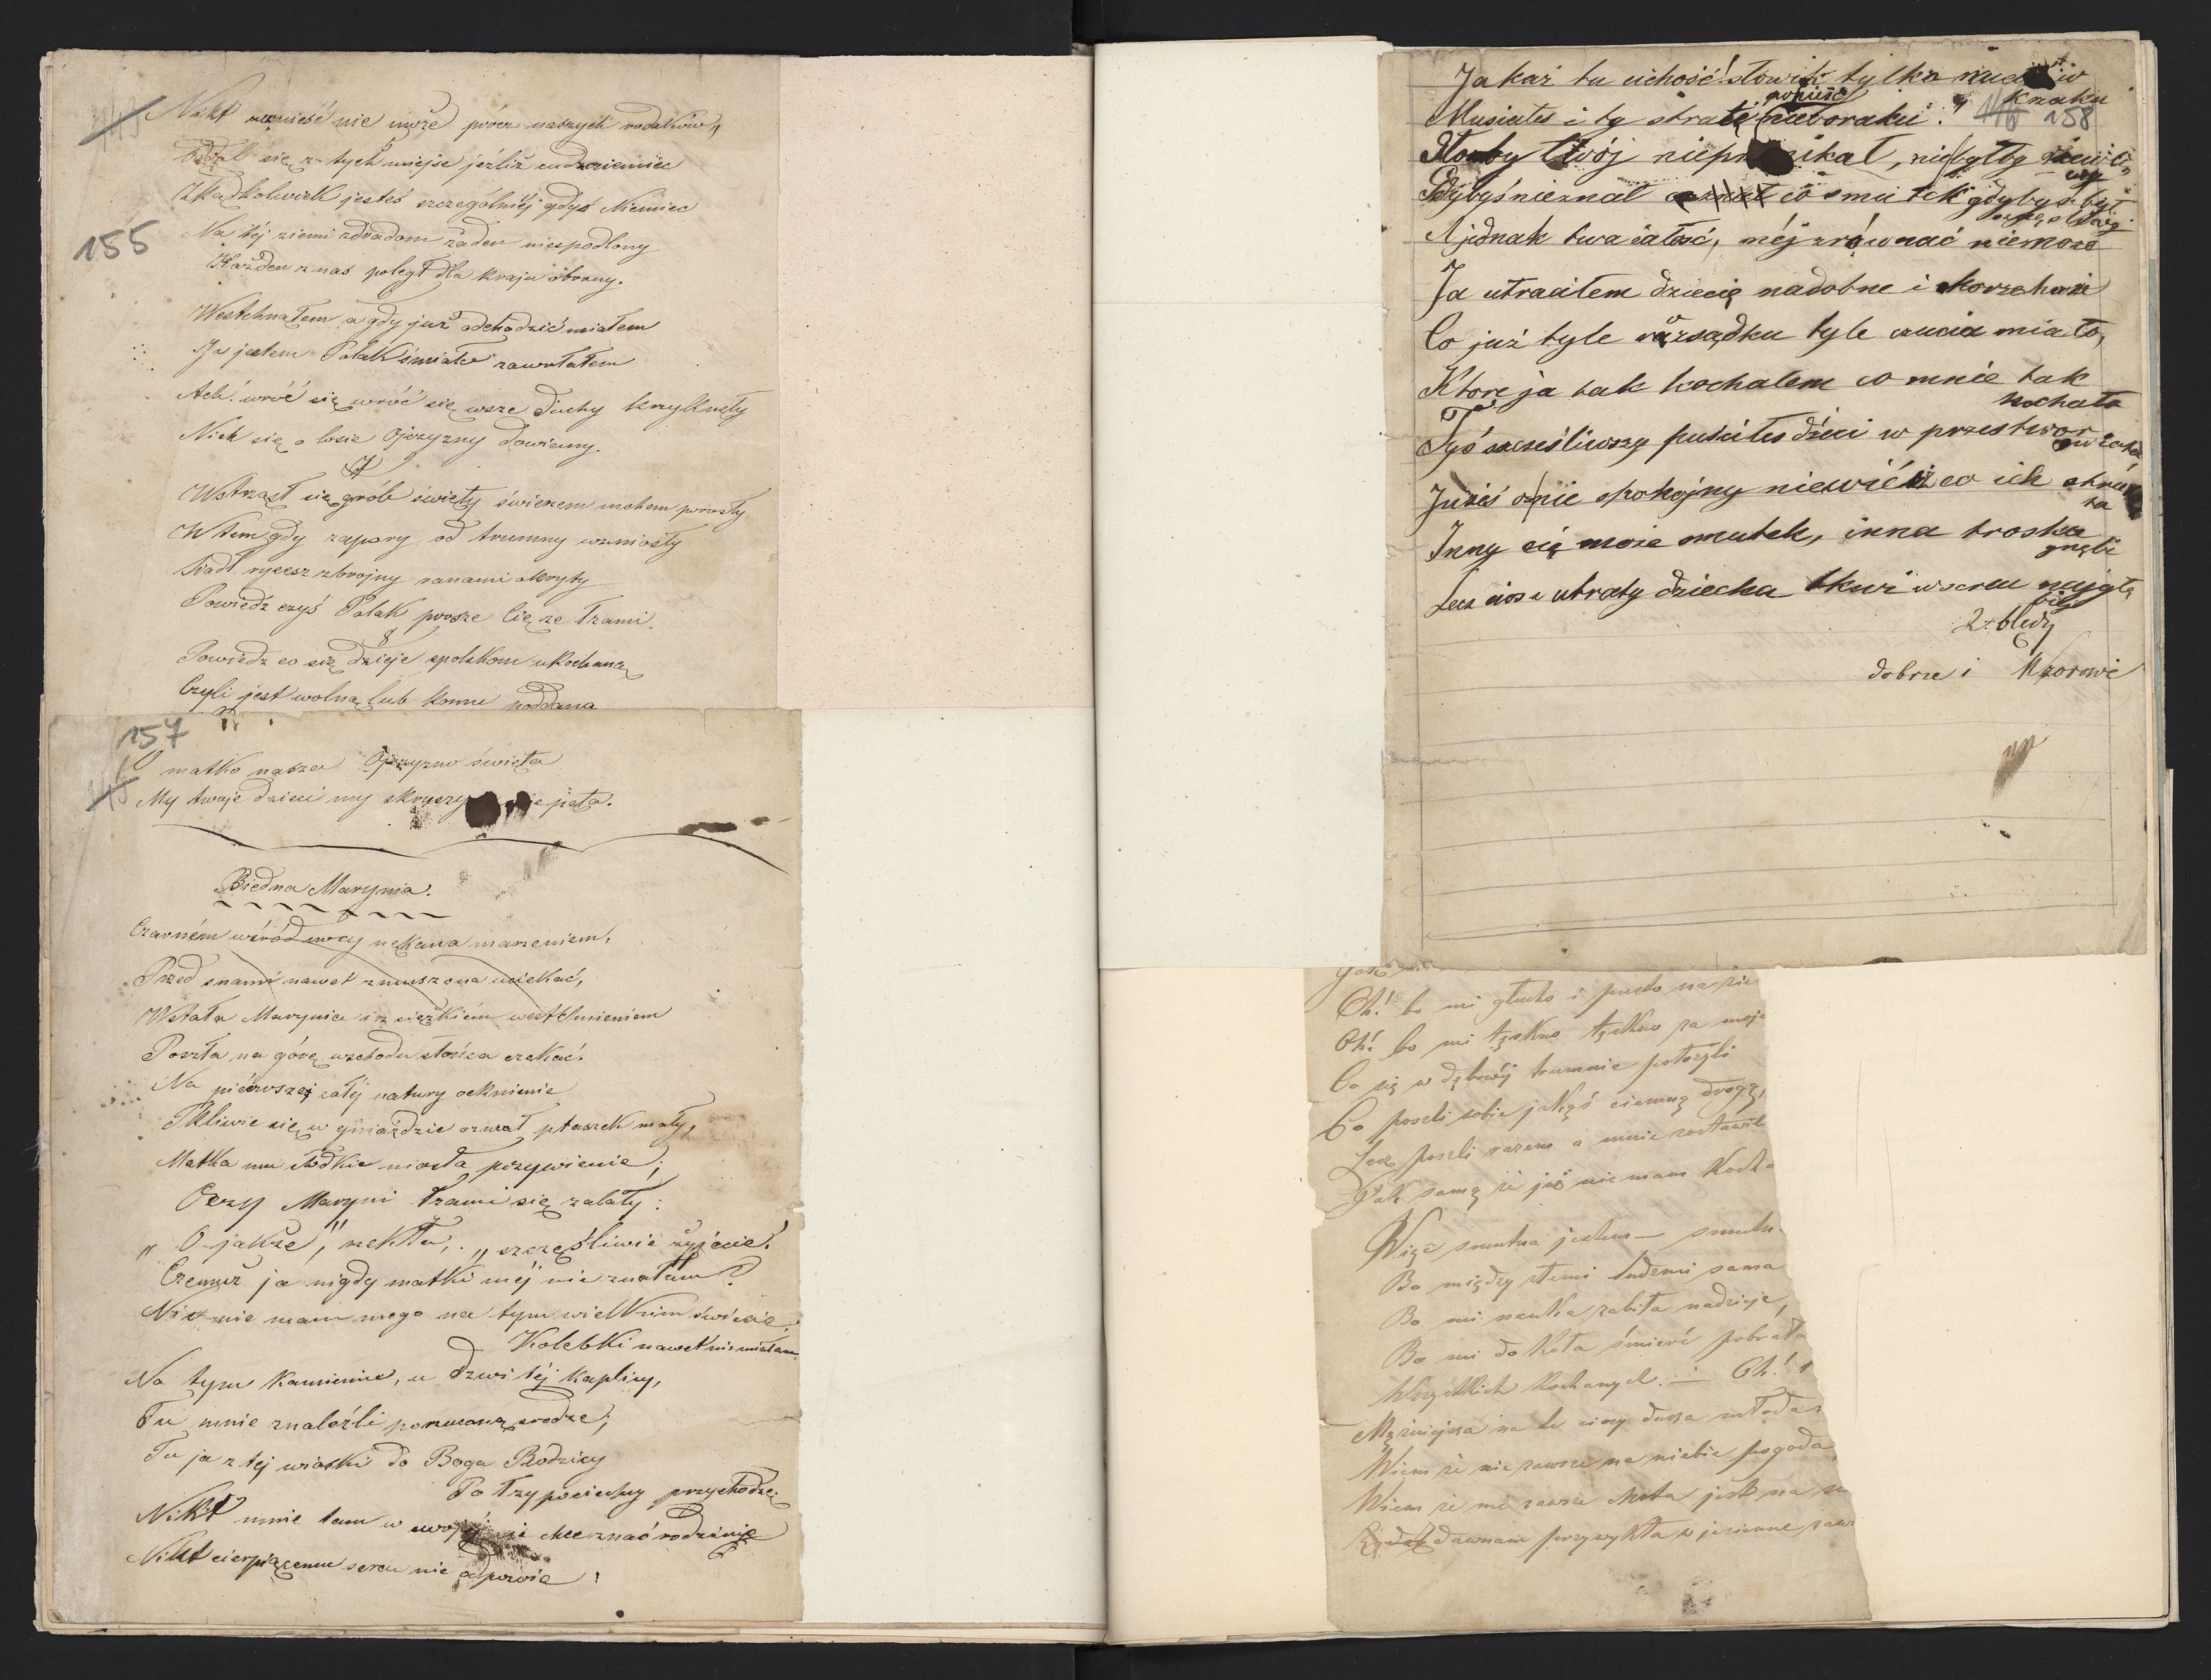 Nikt wznieść nie może prócz naszych rodaków,
Oddal się z tych miejsc jeźliż cudzoziemiec
Zkądkolwiek jesteś szczególniéj gdyś Niemiec
155
Na téj ziemi zdradom żaden niespodlony
Każden z nas poległ dla kraju obrony.
Westchnąłem a gdy już odchodzić miałem
Ja jestem Polak śmiało zawołałem
Ach! wróć się wróć się wsze duchy krzyknęły
Niech się o losie Ojczyzny dowiemy.
Wstrząsł się grób święty świeżem mchem porosły
Wtem gdy zapory od trumny wzniosły
Siadł rycerz zbrojny ranami okryty
Powiedz czyś Polak proszę Cię ze łzami.
8
Powiedz co się dzieje spolską ukochaną
Czyli jest wolną lub komu poddana
157
O matko nasza Ojczyzno święta
My twoje dzieci my skruszym pęta.
Biedna Marynia.
Czarném wśród nocy nękana marzeniem,
Przed snami nawet zmuszona uciekać,
Wstała Marynia i z ciężkiém westchnieniem
Poszła na górę wschodu słońca czekać.
Na piérwszej całéj natury ocknienie
Tkliwie się w gniaździe ozwał ptaszek mały,
Matka mu słodkie niosła pożywienie;
Oczy Maryni łzami się zalały:
„O jakże", rzekła, „szczęśliwie żyjecie!
Czemuż ja nigdy matki méj nie znałam?
Nic nie mam mego na tym wielkim świecie,
Kolebki nawet nie miałam.
Na tym kamieniu, u drzwi téj kaplicy,
Tu mnie znaleźli porzuconą srodze;
Tu ja z tej wioski do Boga Rodzicy
Po łzy pociechy przychodzę.
Nikt mnie tam w swojéj nie chce znać rodzinie
Nikt cierpiącemu sercu nie odpowie
Jakaż tu cichość! słowik tylko nuci w
krzaku
158
Musiałeś i ty stratę ponieść nieboraku!
Głosby twój nieprzenikał, niebyłby
Gdybyś nieznał co smutek gdybyś był
A jednak twa żałość, méj zrównać niemoże
Ja utraciłem dziecię nadobne i skore hoże
Co już tyle rozsądku tyle czucia miało,
Które ja tak kochałem co mnie tak
kochało
Tyś szczęśliwszy puściłeś dzieci w przestwor
świata
Jużeś o nie spokojny niewiész co ich
strata
Inny cię może smutek, inna troska
gnębi
Lecz cios z utraty dziecka tkwi w sercu najgłę
biéj
2 błędy
dobrze i Wzorowie
Oh! bo mi głucho i pusto na zie
Oh! bo mi tęskno tęskno za moje
Co się w dębowéj trumnie położyli
Co poszli sobie jakąś ciemną drogą,
Lecz poszli razem a mnie zostawili
Tak samą że już nie mam kocha
Więc smutna jestem — smutn
Bo między złemi ludźmi sama
Bo mi nauka zabiła nadzieje,
Bo mi do koła śmierć pobrała
Wszystkich kochanych. — Oh!
Mężniejsza na te ciosy dusza młoda
Wiem że nie zawsze na niebie pogoda,
Wiem że nie zawsze cnota jest na
dawnam przywykła w jesienne